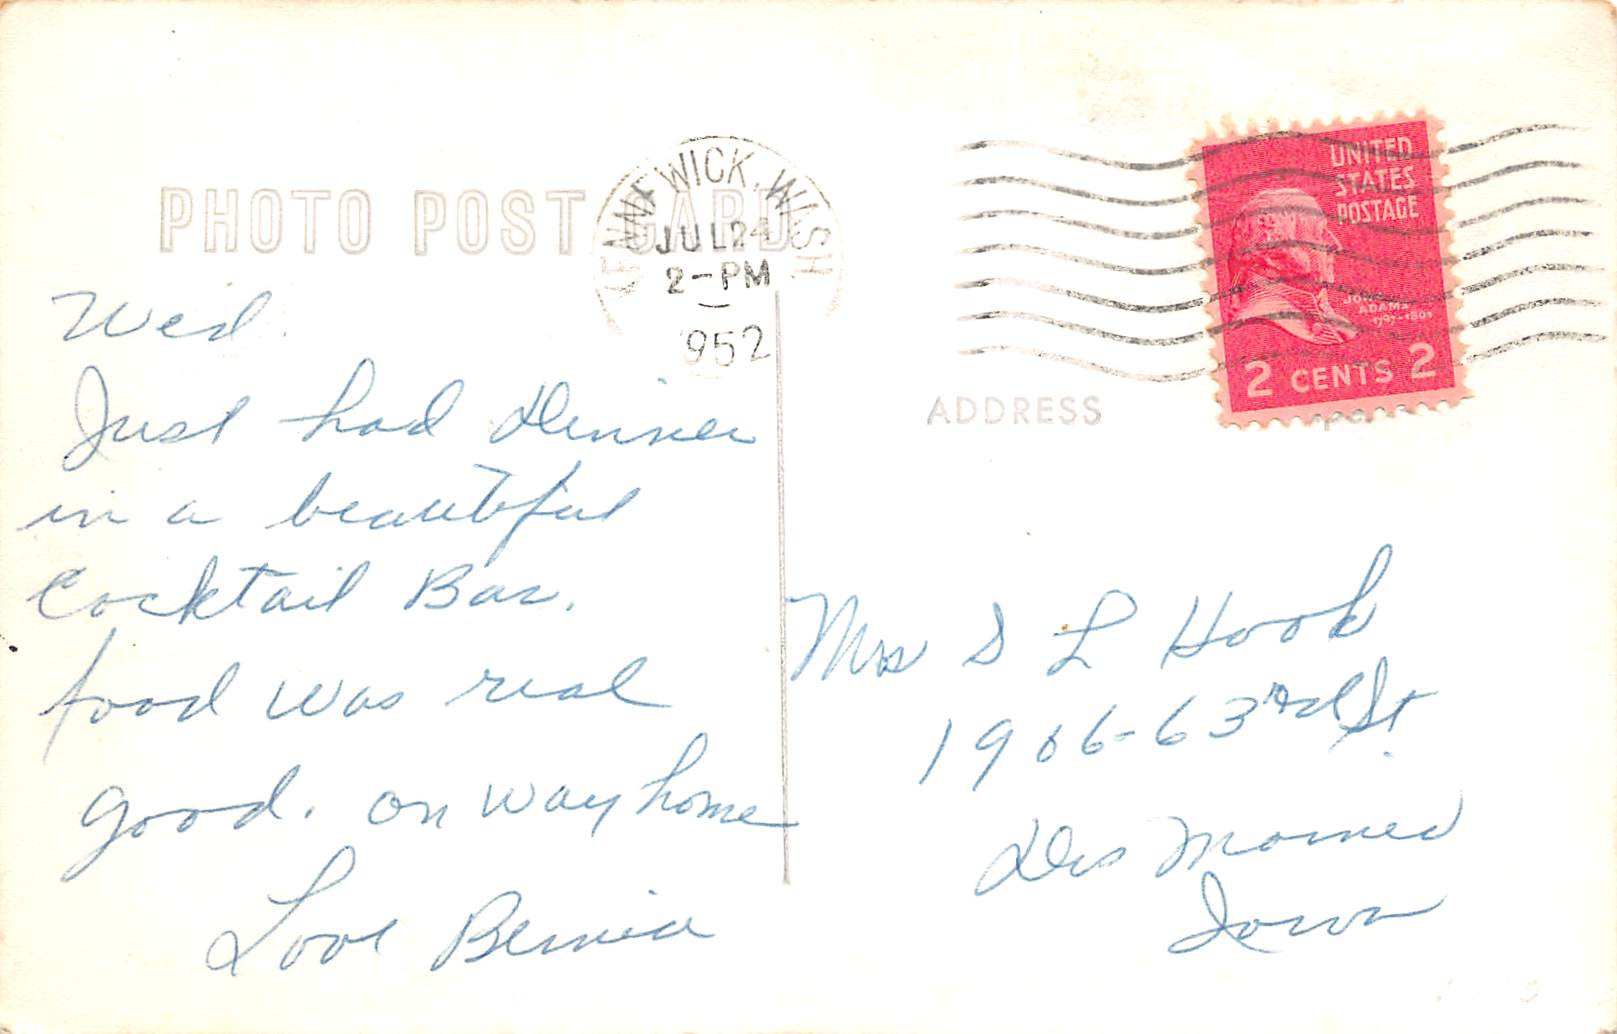 PHOTO POST CARD
KENNEWICK, WASH.
JUL 24
2-PM
1952
UNITED
STATES
POSTAGE
JOHN
ADAMS
1797-1801
2 CENTS 2
ADDRESS
Wed.
Just had Dinner
in a beautiful
Cocktail Bar.
food was real
good. on way home
Love Bernice
Mrs S L Hook
1906-63rd St.
Des Moines
Iowa